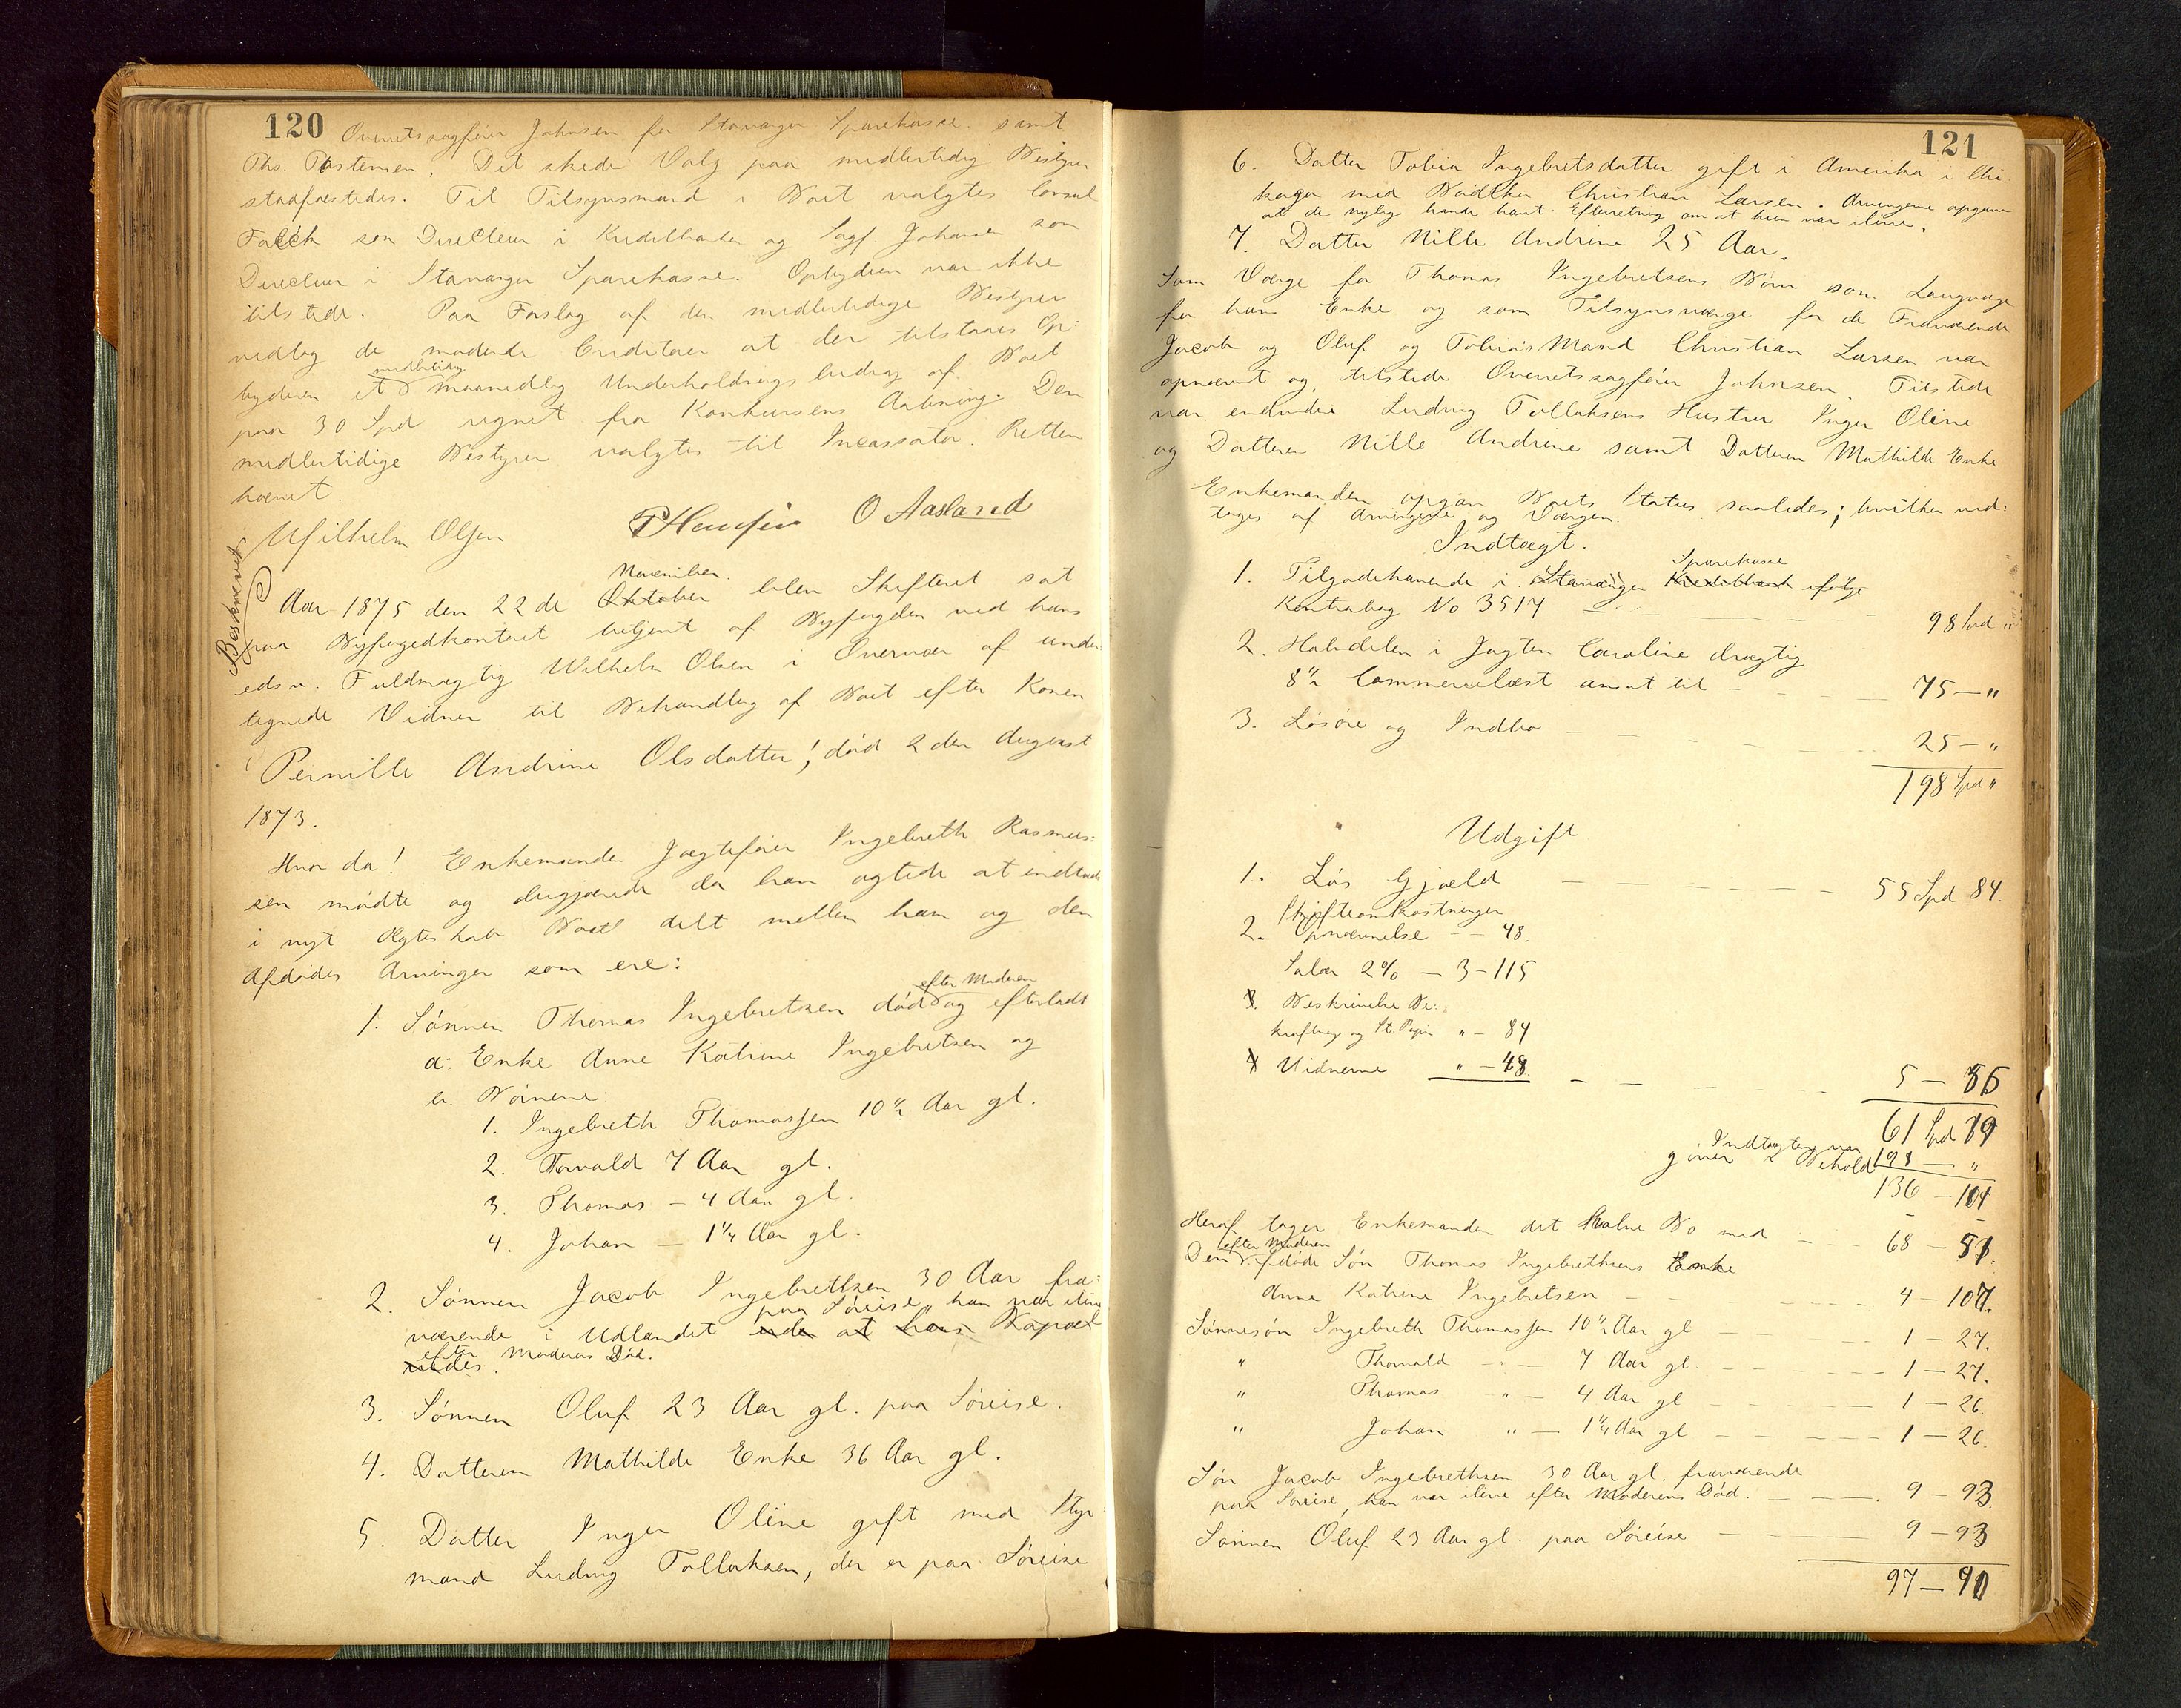 120
Overretssagfører Johnsen for Stavanger Sparekasse samt
Ths. Tastensen. Det skede Valg paa midlertidig Bestyrer
stadfæstedes. Til Tilsynsmænd i Boet valgtes Consul
Falck som Directeur i Kreditbanken og Sagf. Johnsen som
Directeur i Stavanger Sparekasse. Opbyderen var ikke
tilstede. Paa Forslag af den midlertidige Bestyrer
vedtog de mødende Creditorer at der tilstaaes Op-
byderen et midlertidig maanedlig Underholdnings bidrag af Boet
paa 30 Spd regnet fra Konkursens Aabning. Den
midlertidige Bestyrer valgtes til Incassator. Retten
hævet.
Wilhelm Olsen O Aasland
Beskrevet
Aar 1875 den 22 de Oktober November blev Skifteret sat
paa Byfogedkontoret betjent af Byfogden ved hans
edsv. Fuldmægtig Wilhelm Olsen i Overvær af under
tegnede Vidner til Behandling af Boet efter Konen
Pernille Andrine Olsdatter, død 2 den August
1873.
Hvor da! Enkemanden Jægtefører Ingebreth Rasmus-
sen mødte og begjærede da han agtede at indtræde
i nyt Ægteskab Boet delt mellem ham og den
Afdødes Arvinger som ere:
1. Sønnen Thomas Ingebretsen død efter Moderen og efterladt
a: Enke Anne Katrine Ingebretsen og
b. Børnene:
1. Ingebreth Thomassen 10½ Aar gl.
2. Torvald 7 Aar gl.
3. Thomas – 4 Aar gl.
4. Johan – 1¼ Aar gl.
2. Sønnen Jacob Ingebrethsen 30 Aar fra-
værende i Udlandet paa Søreise, han var ilive
efter Moderens Død.
3. Sønnen Oluf 23 Aar gl. paa Søreise.
4. Datteren Mathilde Enke 36 Aar gl.
5. Datter Inger Oline gift med Styr-
mand Ludvig Tollaksen, der er paa Søreise
121
6. Datter Tobia Ingebretsdatter gift i Amerika i Chi
kago med Bødtker Christian Larsen. Arvingerne opgave
at de nylig havde havt Efterretning om at hun var ilive.
7. Datter Nille Andrine 25 Aar.
Som Værge for Thomas Ingebretsens Børn som Laugværge
for hans Enke og som Tilsynsværge for de Fraværende
Jacob og Oluf og Tobias Mand Christian Larsen var
opnævnt og tilstede Overretssagfører Johnsen. Tilstede
var endvidere Ludvig Tollaksens Hustru Inger Oline
og Datteren Nille Andrine samt Datteren Mathilde Enke
Enkemanden opgav Boets Status saaledes; hvilken ved-
toges af Arvingerne og Værgen.
Indtægt.
1. Tilgodehavende i Stavanger Kreditbank Sparekasse ifølge
Kontrabog No 3517 – – – 98 Spd "
2. Halvdelen i Jagten Caroline drægtig
8½ Commercelæst ansat til – – – 75 – "
3. Løsøre og Indbo – – – 25 – "
198 Spd "
Udgift
1. Løs Gjæld – – – 55 Spd 84.
Skifteomkostninger
2. Opnævnelse – – 48.
Salær 2% – 3 – 115
3. Beskrivelse Be-
kræftning og St. Papir " – 84
4 Vidnerne " – 48. – – – 5 – 55
61 Spd 19
Indtægten var 198 – "
giver i Behold 136 – 101
Heraf tager Enkemanden det halve Bo med – – 68 – 51.
Den efter Moderen afdøde Søn Thomas Ingebrethsens Enke
Anne Katrine Ingebretsen – – – 4 – 107.
Sønnesøn Ingebreth Thomassen 10½ Aar gl – – – 1 – 27.
" Thorvald – 7 Aar gl. – – – 1 – 27.
" Thomas " – 4 Aar gl – – – 1 – 26.
" Johan " – 1¼ Aar gl – – – 1 – 26.
Søn Jacob Ingebrethsen 30 Aar gl. fraværende
paa Søreise, han var ilive efter Moderens Død. – – 9 – 93.
Sønnen Oluf 23 Aar gl. paa Søreise – – – 9 – 93
97 – 91